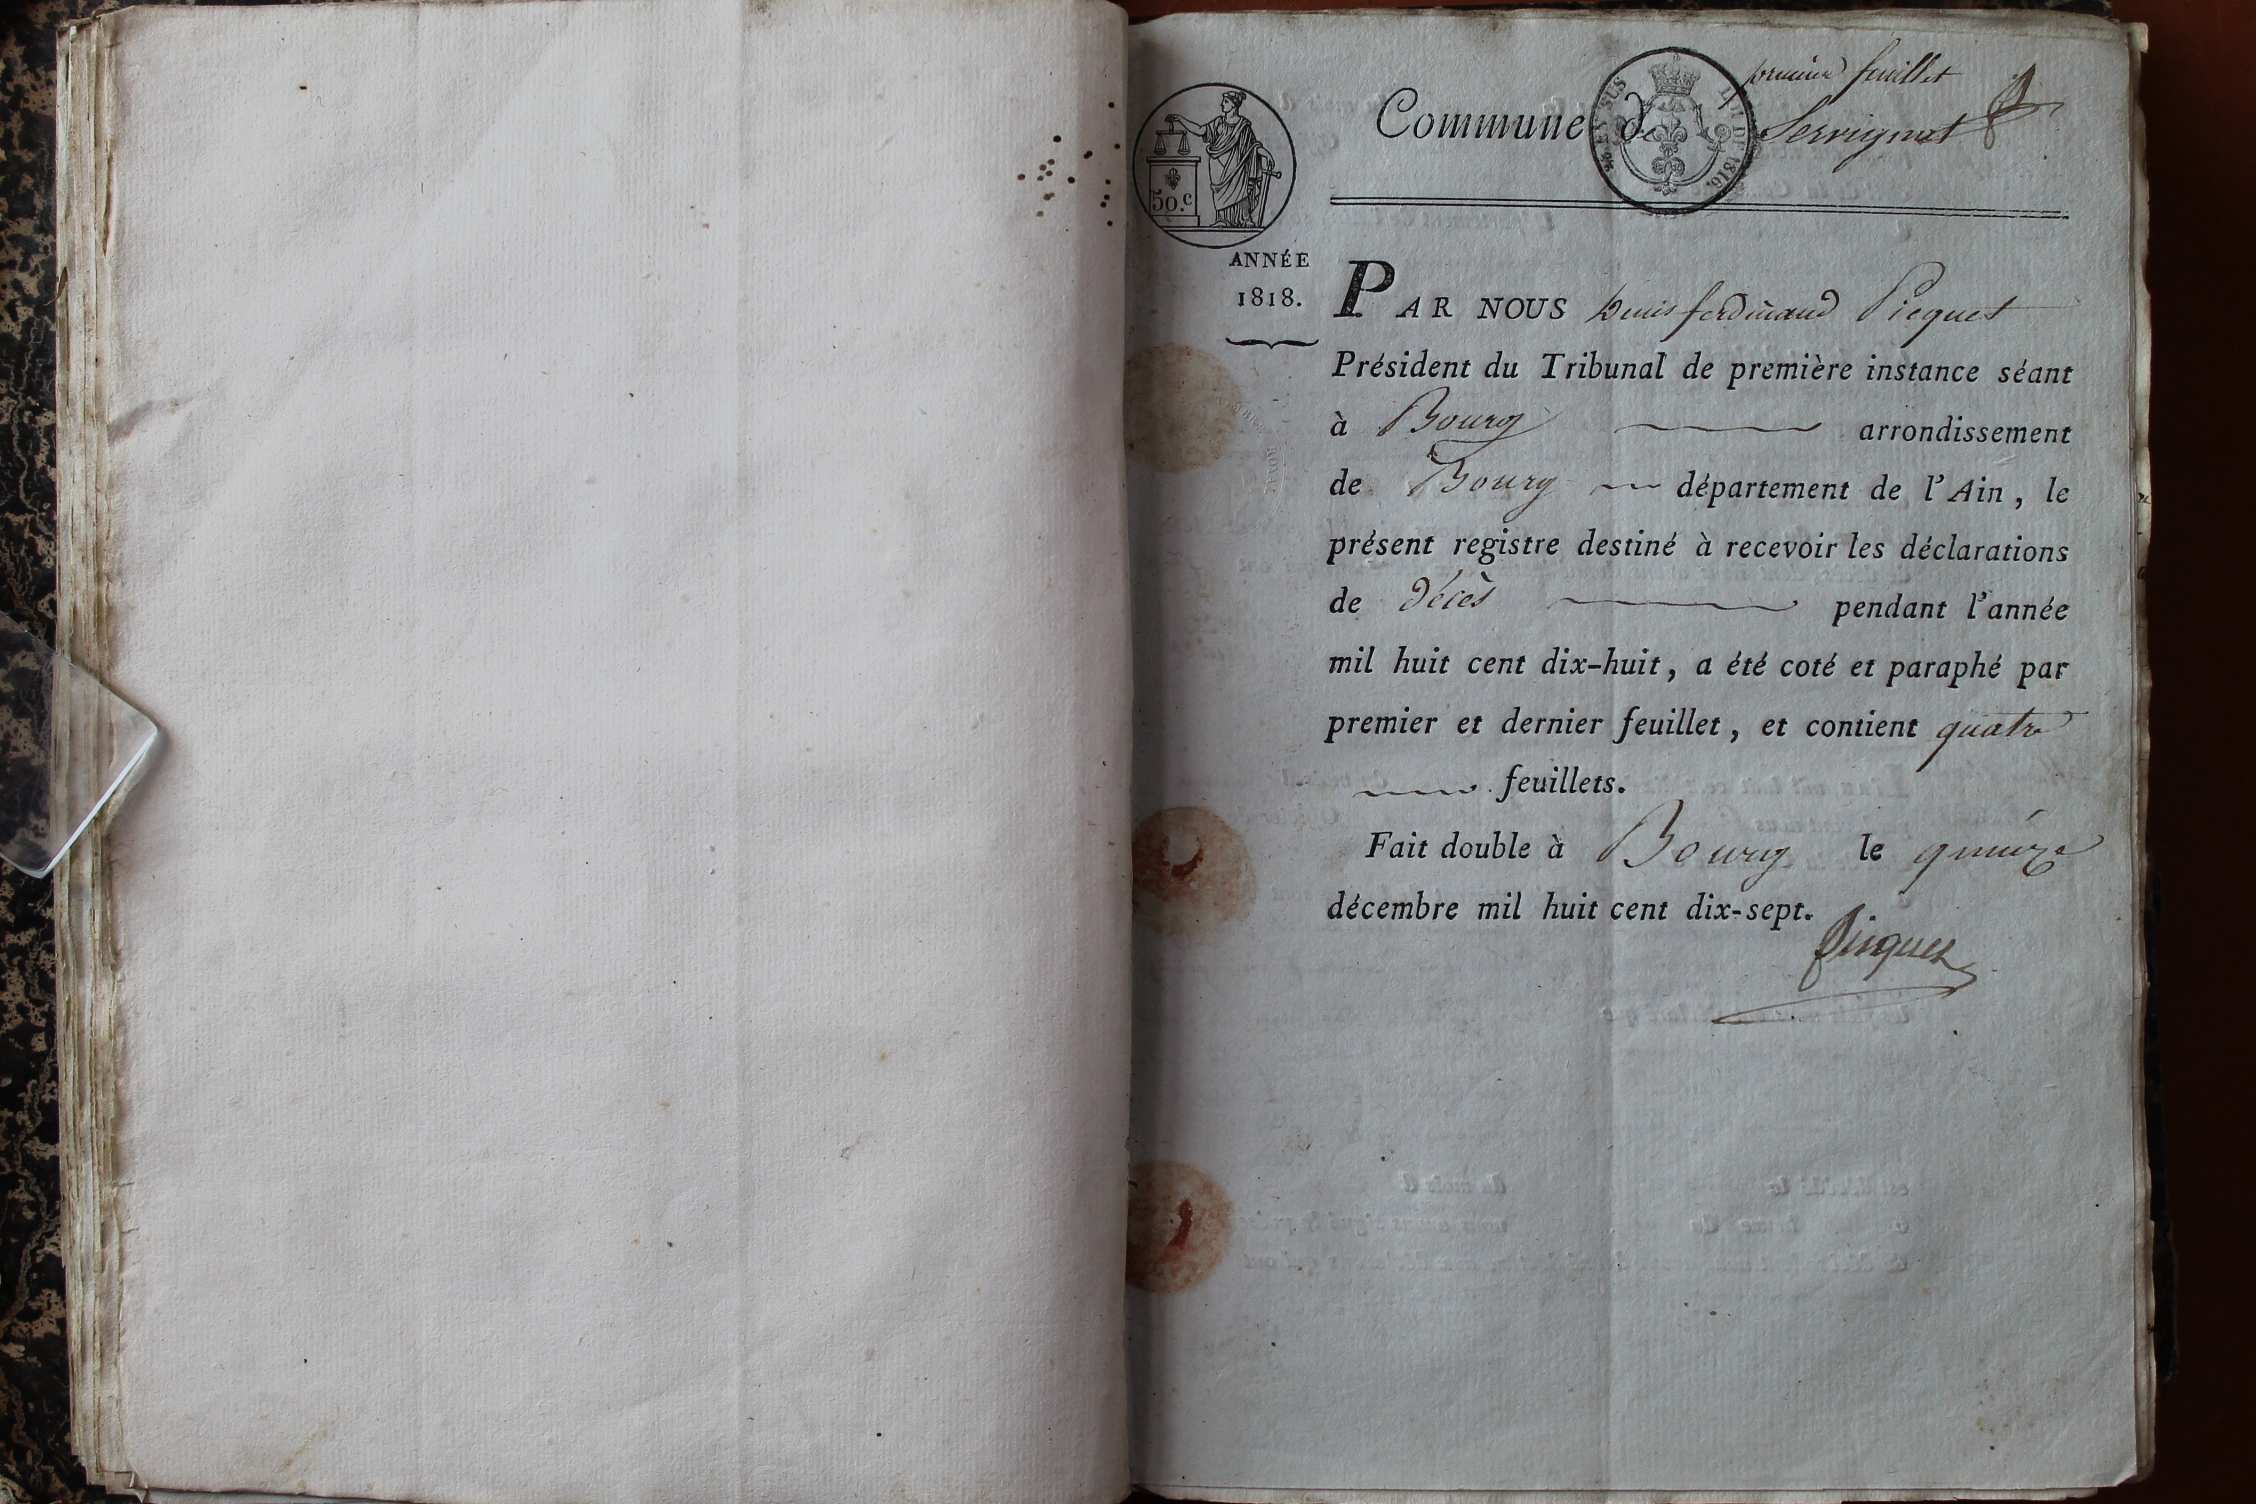 premier feuillet
Commune de Servignat
EN SUS
LOI DE 1816.
50.c
ANNÉE
1818.
PAR NOUS Louis ferdinand Picquet
Président du Tribunal de première instance séant
à Bourg arrondissement
de Bourg département de l'Ain, le
présent registre destiné à recevoir les déclarations
de décès pendant l'année
mil huit cent dix-huit, a été coté et paraphé par
premier et dernier feuillet, et contient quatre
feuillets.
Fait double à Bourg le quinze
décembre mil huit cent dix-sept.
Picquet